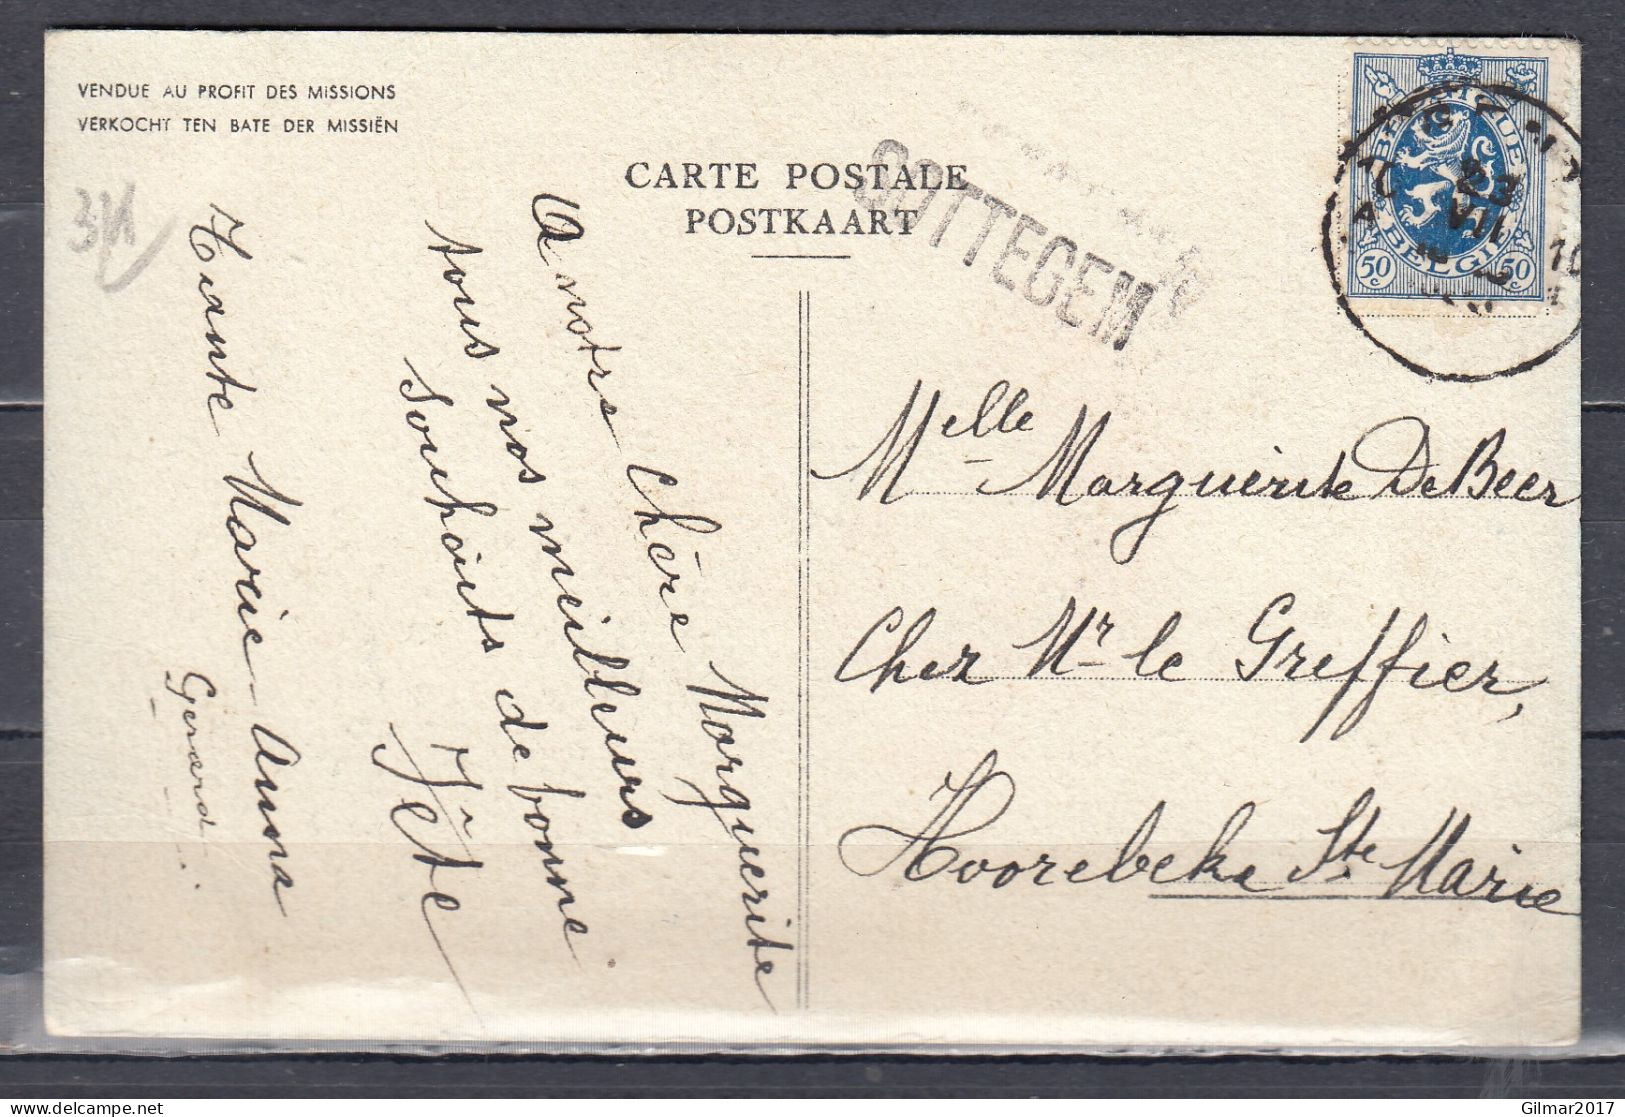 VENDUE AU PROFIT DES MISSIONS
VERKOCHT TEN BATE DER MISSIËN
CARTE POSTALE
POSTKAART
GOTTEGEM
BELGIQUE
BELGIË
50 c 50 c
23
VII
10
A notre Chère Marguerite
tous nos meilleurs
souhaits de bonne
fête
Tante Marie-Anna
Gerard
Melle Marguerite De Beer
Chez Mr le Greffier,
Hoorebeke Ste Marie
Gilmar2017